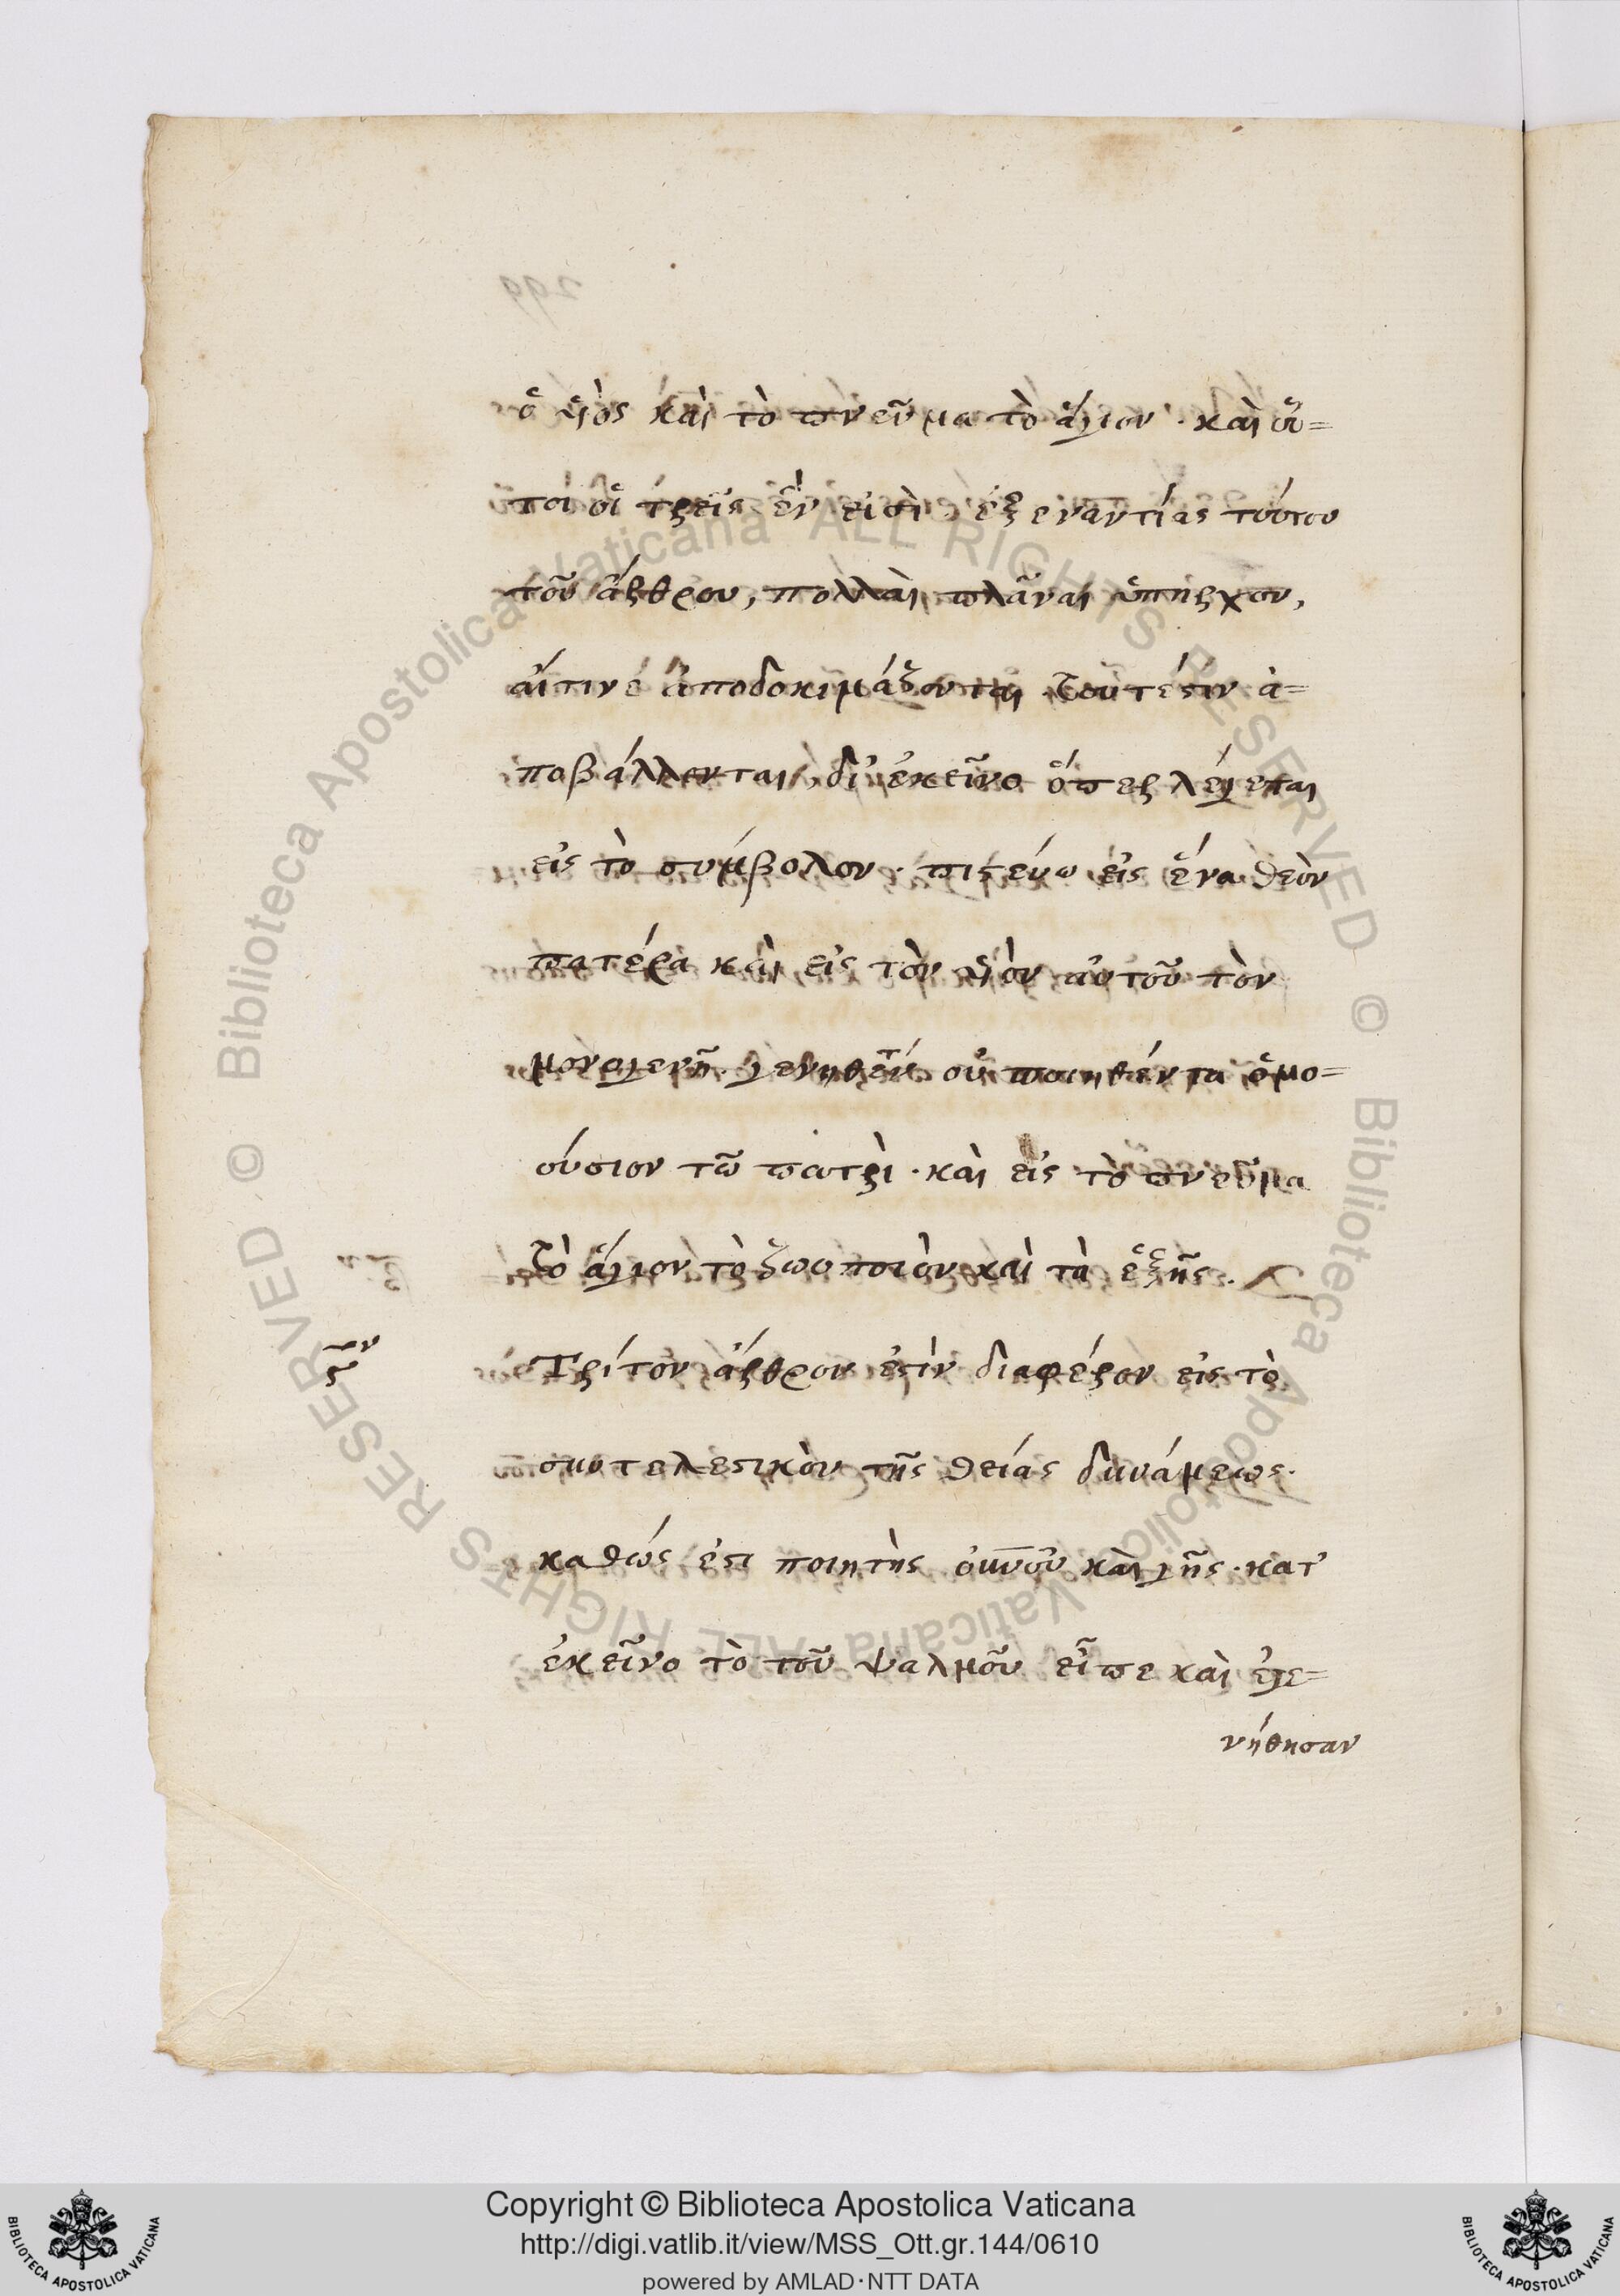 ὁ υἱὸς καὶ τὸ πνεῦμα τὸ ἅγιον · καὶ οὗ=
τοι οἱ τρεῖς ἕν εἰσὶ · ἐξεναντίας τούτου
τοῦ ἄρθρου, πολλαὶ πλᾶναι ὑπῆρχον,
αἵτινε ἀποδοκιμάζονται τουτέστιν ἀ=
ποβάλλονται, δι' ἐκεῖνο ὅπερ λέγεται
εἰς τὸ σύμβολον · πιστεύω εἰς ἕνα θεὸν
πατέρα καὶ εἰς τὸν υἱὸν αὐτοῦ τὸν
μονογενῆ. γενηθέντα οὐ ποιηθέντα ὁμο=
ούσιον τῶ πατρὶ · καὶ εἰς τὸ πνεῦμα
τὸ ἅγιον τὸ ζωοποιὸν καὶ τὰ ἑξῆς.
Τρίτον ἄρθρον ἐστὶν διαφέρον εἰς τὸ
συντελεστικὸν τῆς θείας δυνάμεως.
καθώς ἐστι ποιητὴς οὐνοῦ καὶ γῆς · κατ'
ἐκεῖνο τὸ τοῦ ψαλμοῦ εἶπε καὶ ἐγε=
νήθησαν
Copyright © Biblioteca Apostolica Vaticana
http://digi.vatlib.it/view/MSS_Ott.gr.144/0610
powered by AMLAD·NTT DATA
© Biblioteca Apostolica Vaticana ALL RIGHTS RESERVED
© Biblioteca Apostolica Vaticana ALL RIGHTS RESERVED
BIBLIOTECA APOSTOLICA VATICANA
BIBLIOTECA APOSTOLICA VATICANA